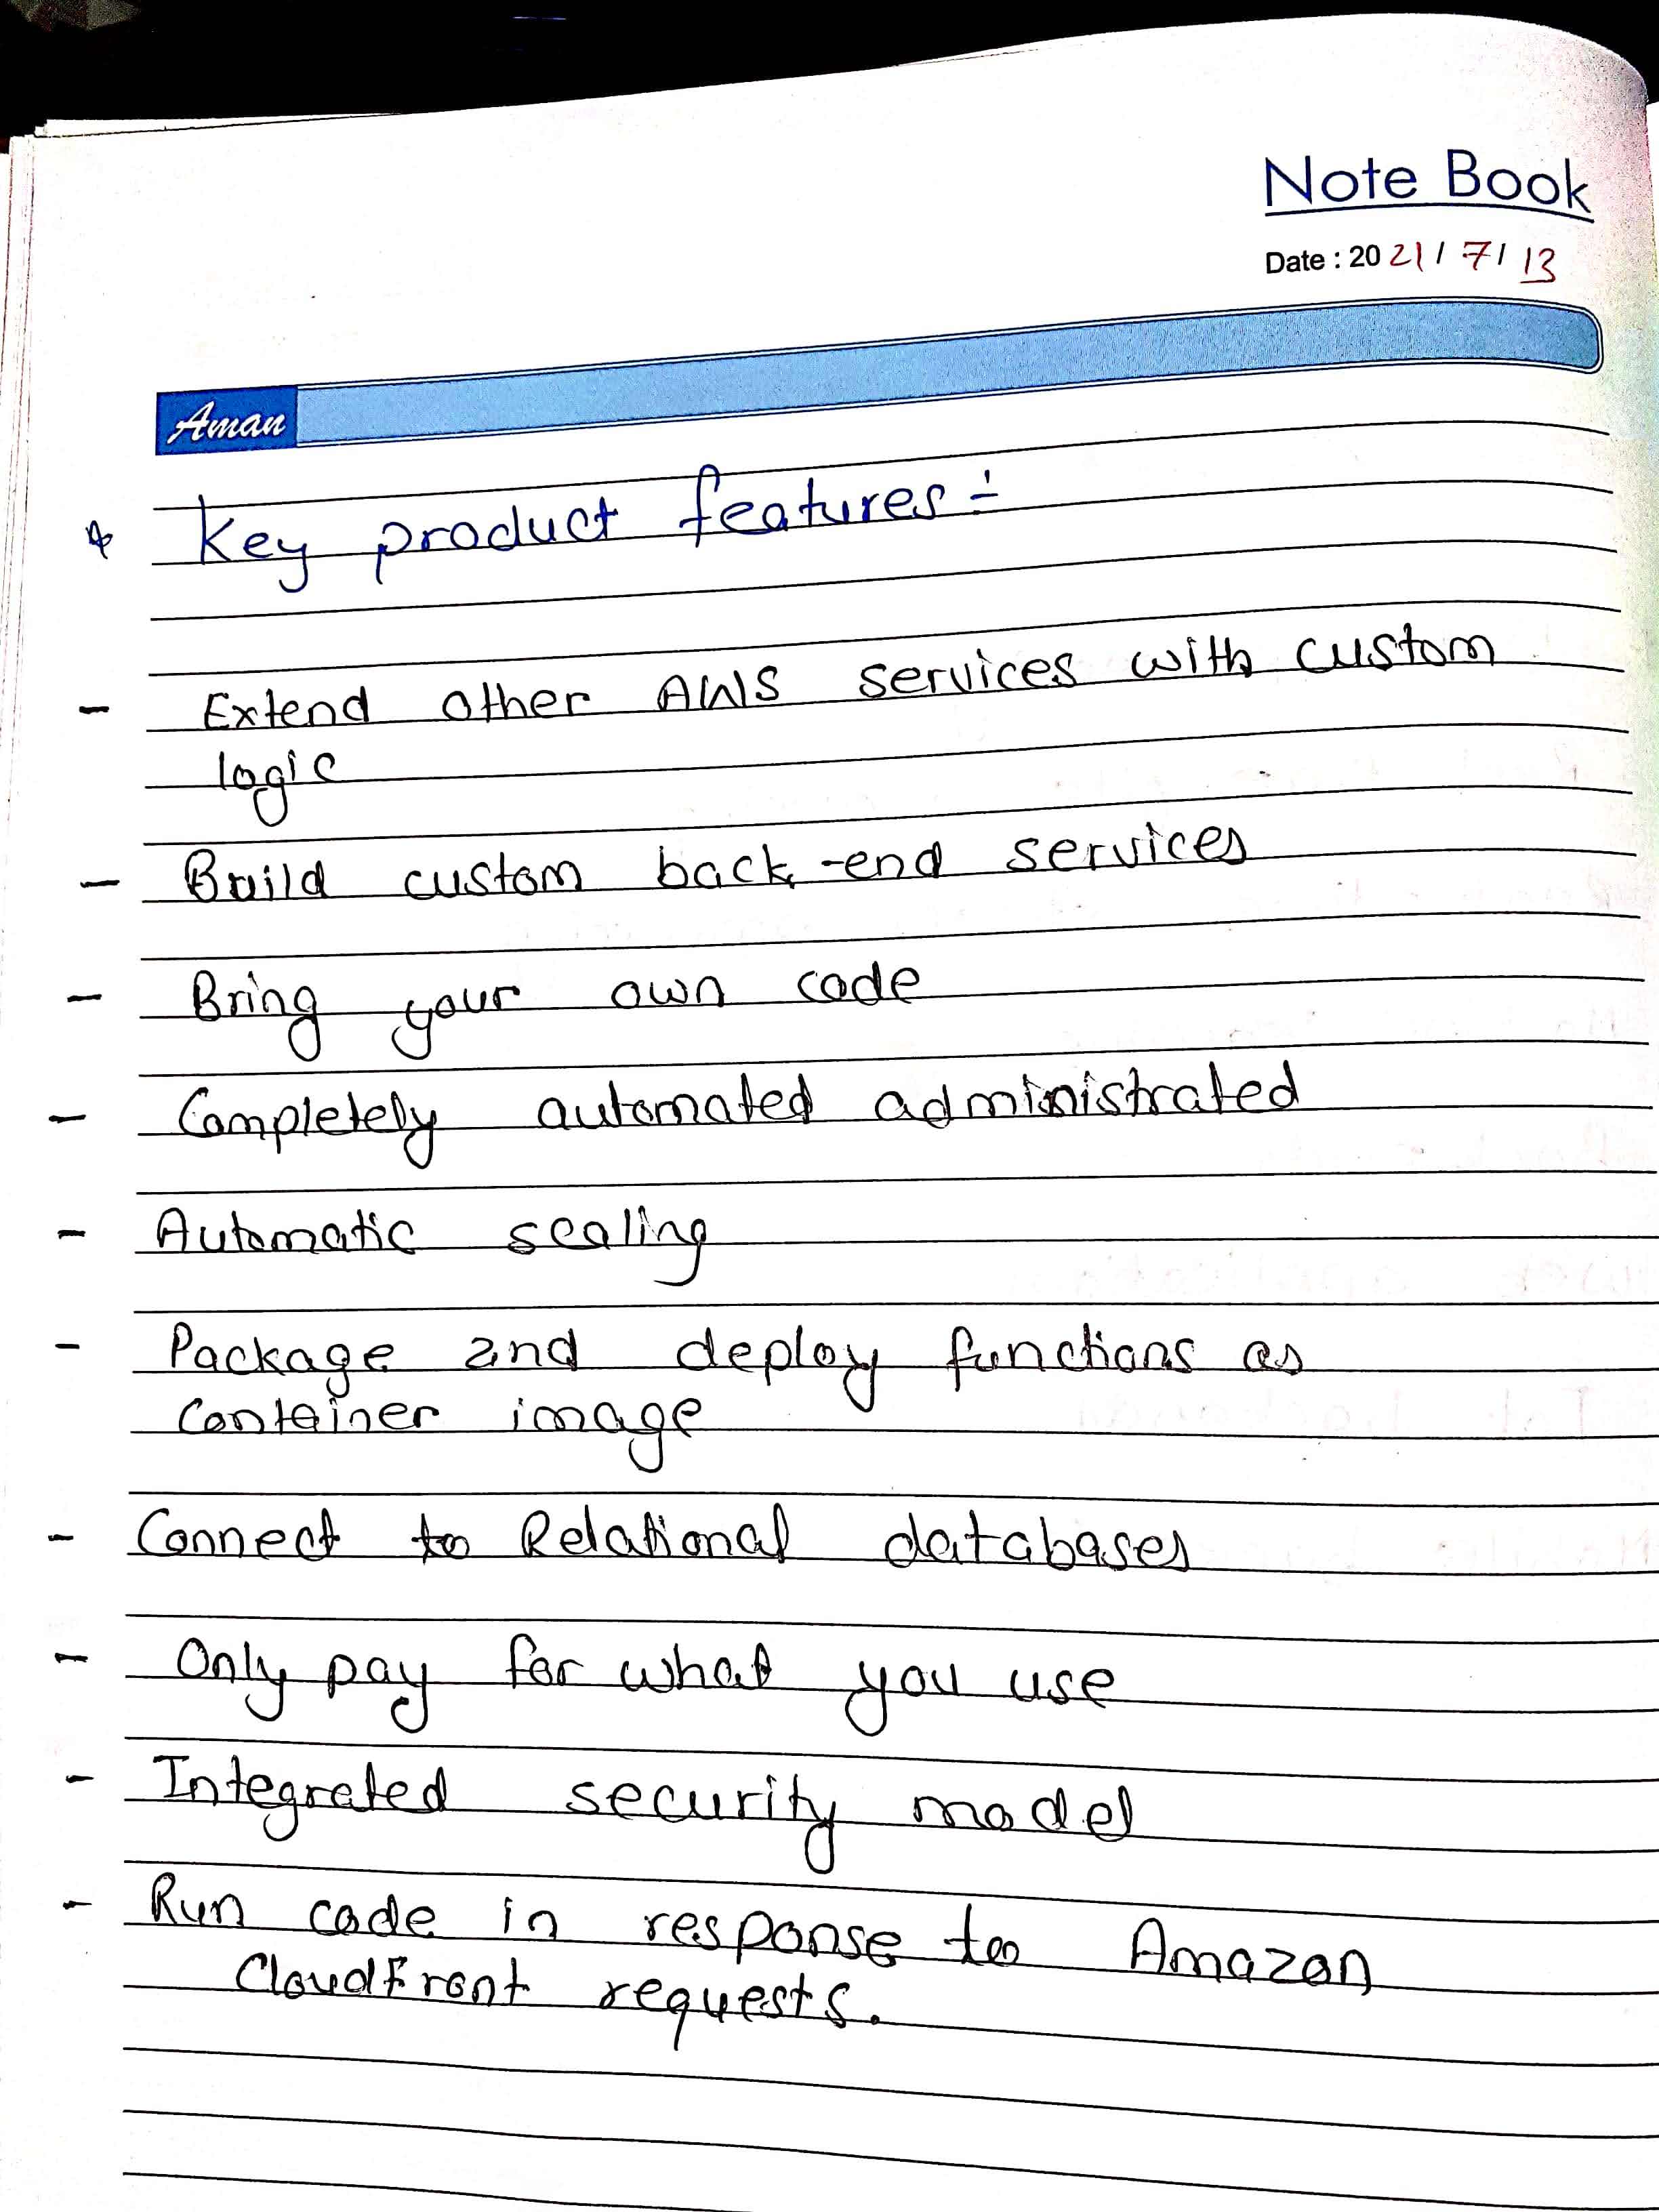 Note Book
Date : 2021/7/13
Aman
* Key product features :-
- Extend other AWS services with custom
logic
- Build custom back-end services
- Bring your own code
- Completely automated administrated
- Automatic scaling
- Package and deploy functions as
container image
- Connect to Relational databases
- Only pay for what you use
- Integrated security model
- Run code in response to Amazon
CloudFront requests.